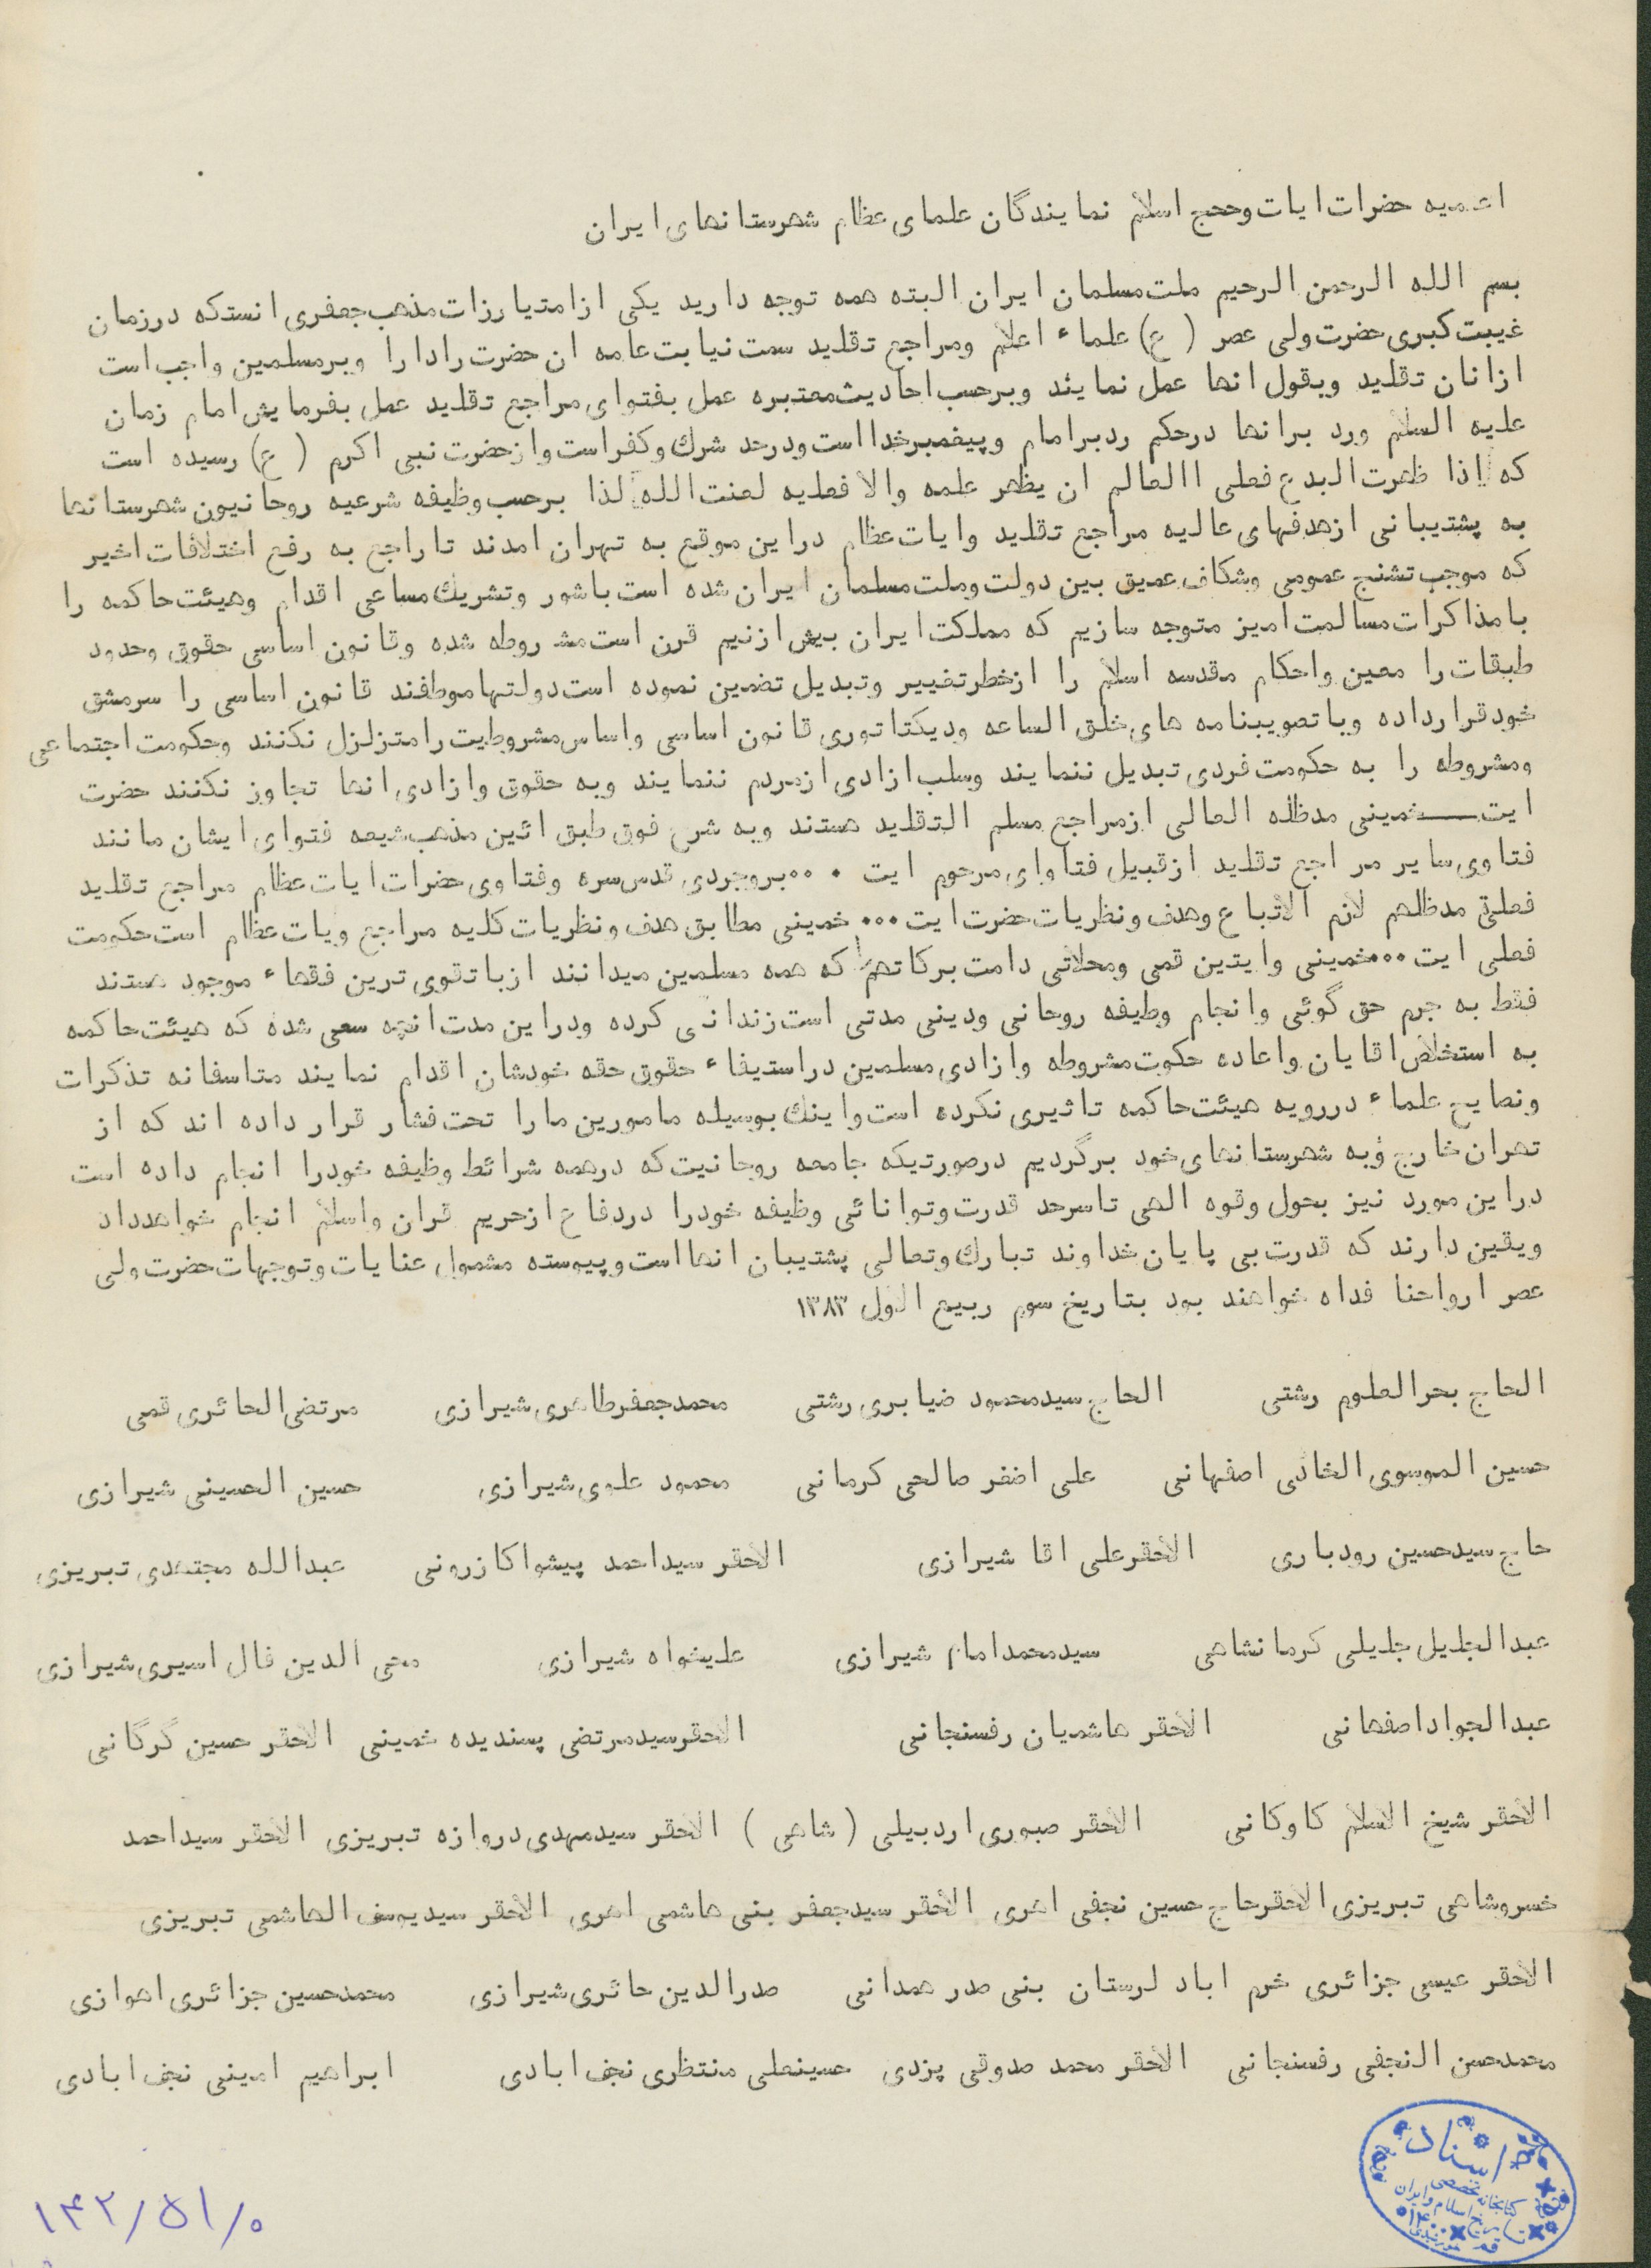 اعلامیه حضرات ایات وحجج اسلام نمایندگان علمای عظام شهرستانهای ایران
بسم الله الرحمن الرحیم ملت مسلمان ایران البته همه توجه دارید یکی ازامتیارزات مذهب جعفری انستکه درزمان
غیبت کبری حضرت ولی عصر (ع) علماء اعلام ومراجع تقلید سمت نیابت عامه ان حضرت رادارا وبرمسلمین واجب است
ازانان تقلید وبقول انها عمل نمایند وبرحسب احادیث معتبره عمل بفتوای مراجع تقلید عمل بفرمایش امام زمان
علیه السلام ورد برانها درحکم ردبرامام وپیغمبرخدااست ودرحد شرك وکفراست وازحضرت نبی اکرم (ع) رسیده است
که اذا ظهرت البدع فعلی االعالم ان یظهر علمه والا فعلیه لعنت الله لذا برحسب وظیفه شرعیه روحانیون شهرستانها
به پشتیبانی ازهدفهای عالیه مراجع تقلید وایات عظام دراین موقع به تهران امدند تاراجع به رفع اختلافات اخیر
که موجب تشنج عمومی وشکاف عمیق بین دولت وملت مسلمان ایران شده است باشور وتشریك مساعی اقدام وهیئت حاکمه را
بامذاکرات مسالمت امیز متوجه سازیم که مملکت ایران بیش ازنیم قرن است مش روطه شده وقانون اساسی حقوق وحدود
طبقات را معین واحکام مقدسه اسلام را ازخطرتغییر وتبدیل تضمین نموده است دولتهاموظفند قانون اساسی را سرمشق
خودقرارداده وباتصویبنامه های خلق الساعه ودیکتاتوری قانون اساسی واساس مشروطیت رامتزلزل نکنند وحکومت اجتماعی
ومشروطه را به حکومت فردی تبدیل ننمایند وسلب ازادی ازمردم ننمایند وبه حقوق وازادی انها تجاوز نکنند حضرت
ایت ــــ خمینی مدظله العالی ازمراجع مسلم التقلید هستند وبه شرح فوق طبق ائین مذهب شیعه فتوای ایشان مانند
فتاوی سایر مراجع تقلید ازقبیل فتاوای مرحوم ایت ۰۰۰ بروجردی قدس سره وفتاوی حضرات ایات عظام مراجع تقلید
فعلی مدظلهم لازم الاتباع وهدف ونظریات حضرت ایت ۰۰۰ خمینی مطابق هدف ونظریات کلیه مراجع ویات عظام است حکومت
فعلی ایت ۰۰۰ خمینی وایتین قمی ومحلاتی دامت برکاتهم را که همه مسلمین میدانند ازباتقوی ترین فقهاء موجود هستند
فقط به جرم حق گوئی وانجام وظیفه روحانی ودینی مدتی است زندانی کرده ودراین مدت انچه سعی شده که هیئت حاکمه
به استخلاص اقایان واعاده حکوت مشروطه وازادی مسلمین دراستیفاء حقوق حقه خودشان اقدام نمایند متاسفانه تذکرات
ونصایح علماء دررویه هیئت حاکمه تاثیری نکرده است واینك بوسیله مامورین مارا تحت فشار قرار داده اند که از
تهران خارج وبه شهرستانهای خود برگردیم درصورتیکه جامعه روحانیت که درهمه شرائط وظیفه خودرا انجام داده است
دراین مورد نیز بحول وقوه الهی تاسرحد قدرت وتوانائی وظیفه خودرا دردفاع ازحریم قران واسلام انجام خواهدداد
ویقین دارند که قدرت بی پایان خداوند تبارك وتعالی پشتیبان انهااست وپیوسته مشمول عنایات وتوجهات حضرت ولی
عصر ارواحنا فداه خواهند بود بتاریخ سوم ربیع الاول ۱۳۸۳
الحاج بحرالعلوم رشتی الحاج سیدمحمود ضیابری رشتی محمدجعفرطاهری شیرازی مرتضی الحائری قمی
حسین الموسوی الخادمی اصفهانی علی اصغر صالحی کرمانی محمود علوی شیرازی حسین الحسینی شیرازی
حاج سیدحسین رودباری الاحقرعلی اقا شیرازی الاحقر سیداحمد پیشواکازرونی عبدالله مجتهدی تبریزی
عبدالجلیل جلیلی کرمانشاهی سیدمحمدامام شیرازی علیخواه شیرازی محی الدین فال اسیری شیرازی
عبدالجواداصفهانی الاحقر هاشمیان رفسنجانی الاحقرسیدمرتضی پسندیده خمینی الاحقر حسین گرگانی
الاحقر شیخ الاسلام کاوکانی الاحقر صبوری اردبیلی (شاهی) الاحقر سیدمهدی دروازه تبریزی الاحقر سیداحمد
خسروشاهی تبریزی الاحقرحاج حسین نجفی اهری الاحقر سیدجعفر بنی هاشمی اهری الاحقر سیدیوسف الهاشمی تبریزی
الاحقر عیسی جزائری خرم اباد لرستان بنی صدر همدانی صدرالدین حائری شیرازی محمدحسین جزائری اهوازی
محمدحسن النجفی رفسنجانی الاحقر محمد صدوقی یزدی حسینعلی منتظری نجف ابادی ابراهیم امینی نجف ابادی
اسناد
کتابخانه تخصصی
تاریخ اسلام و ایران
قم
۱۴۲/۵۱/۰